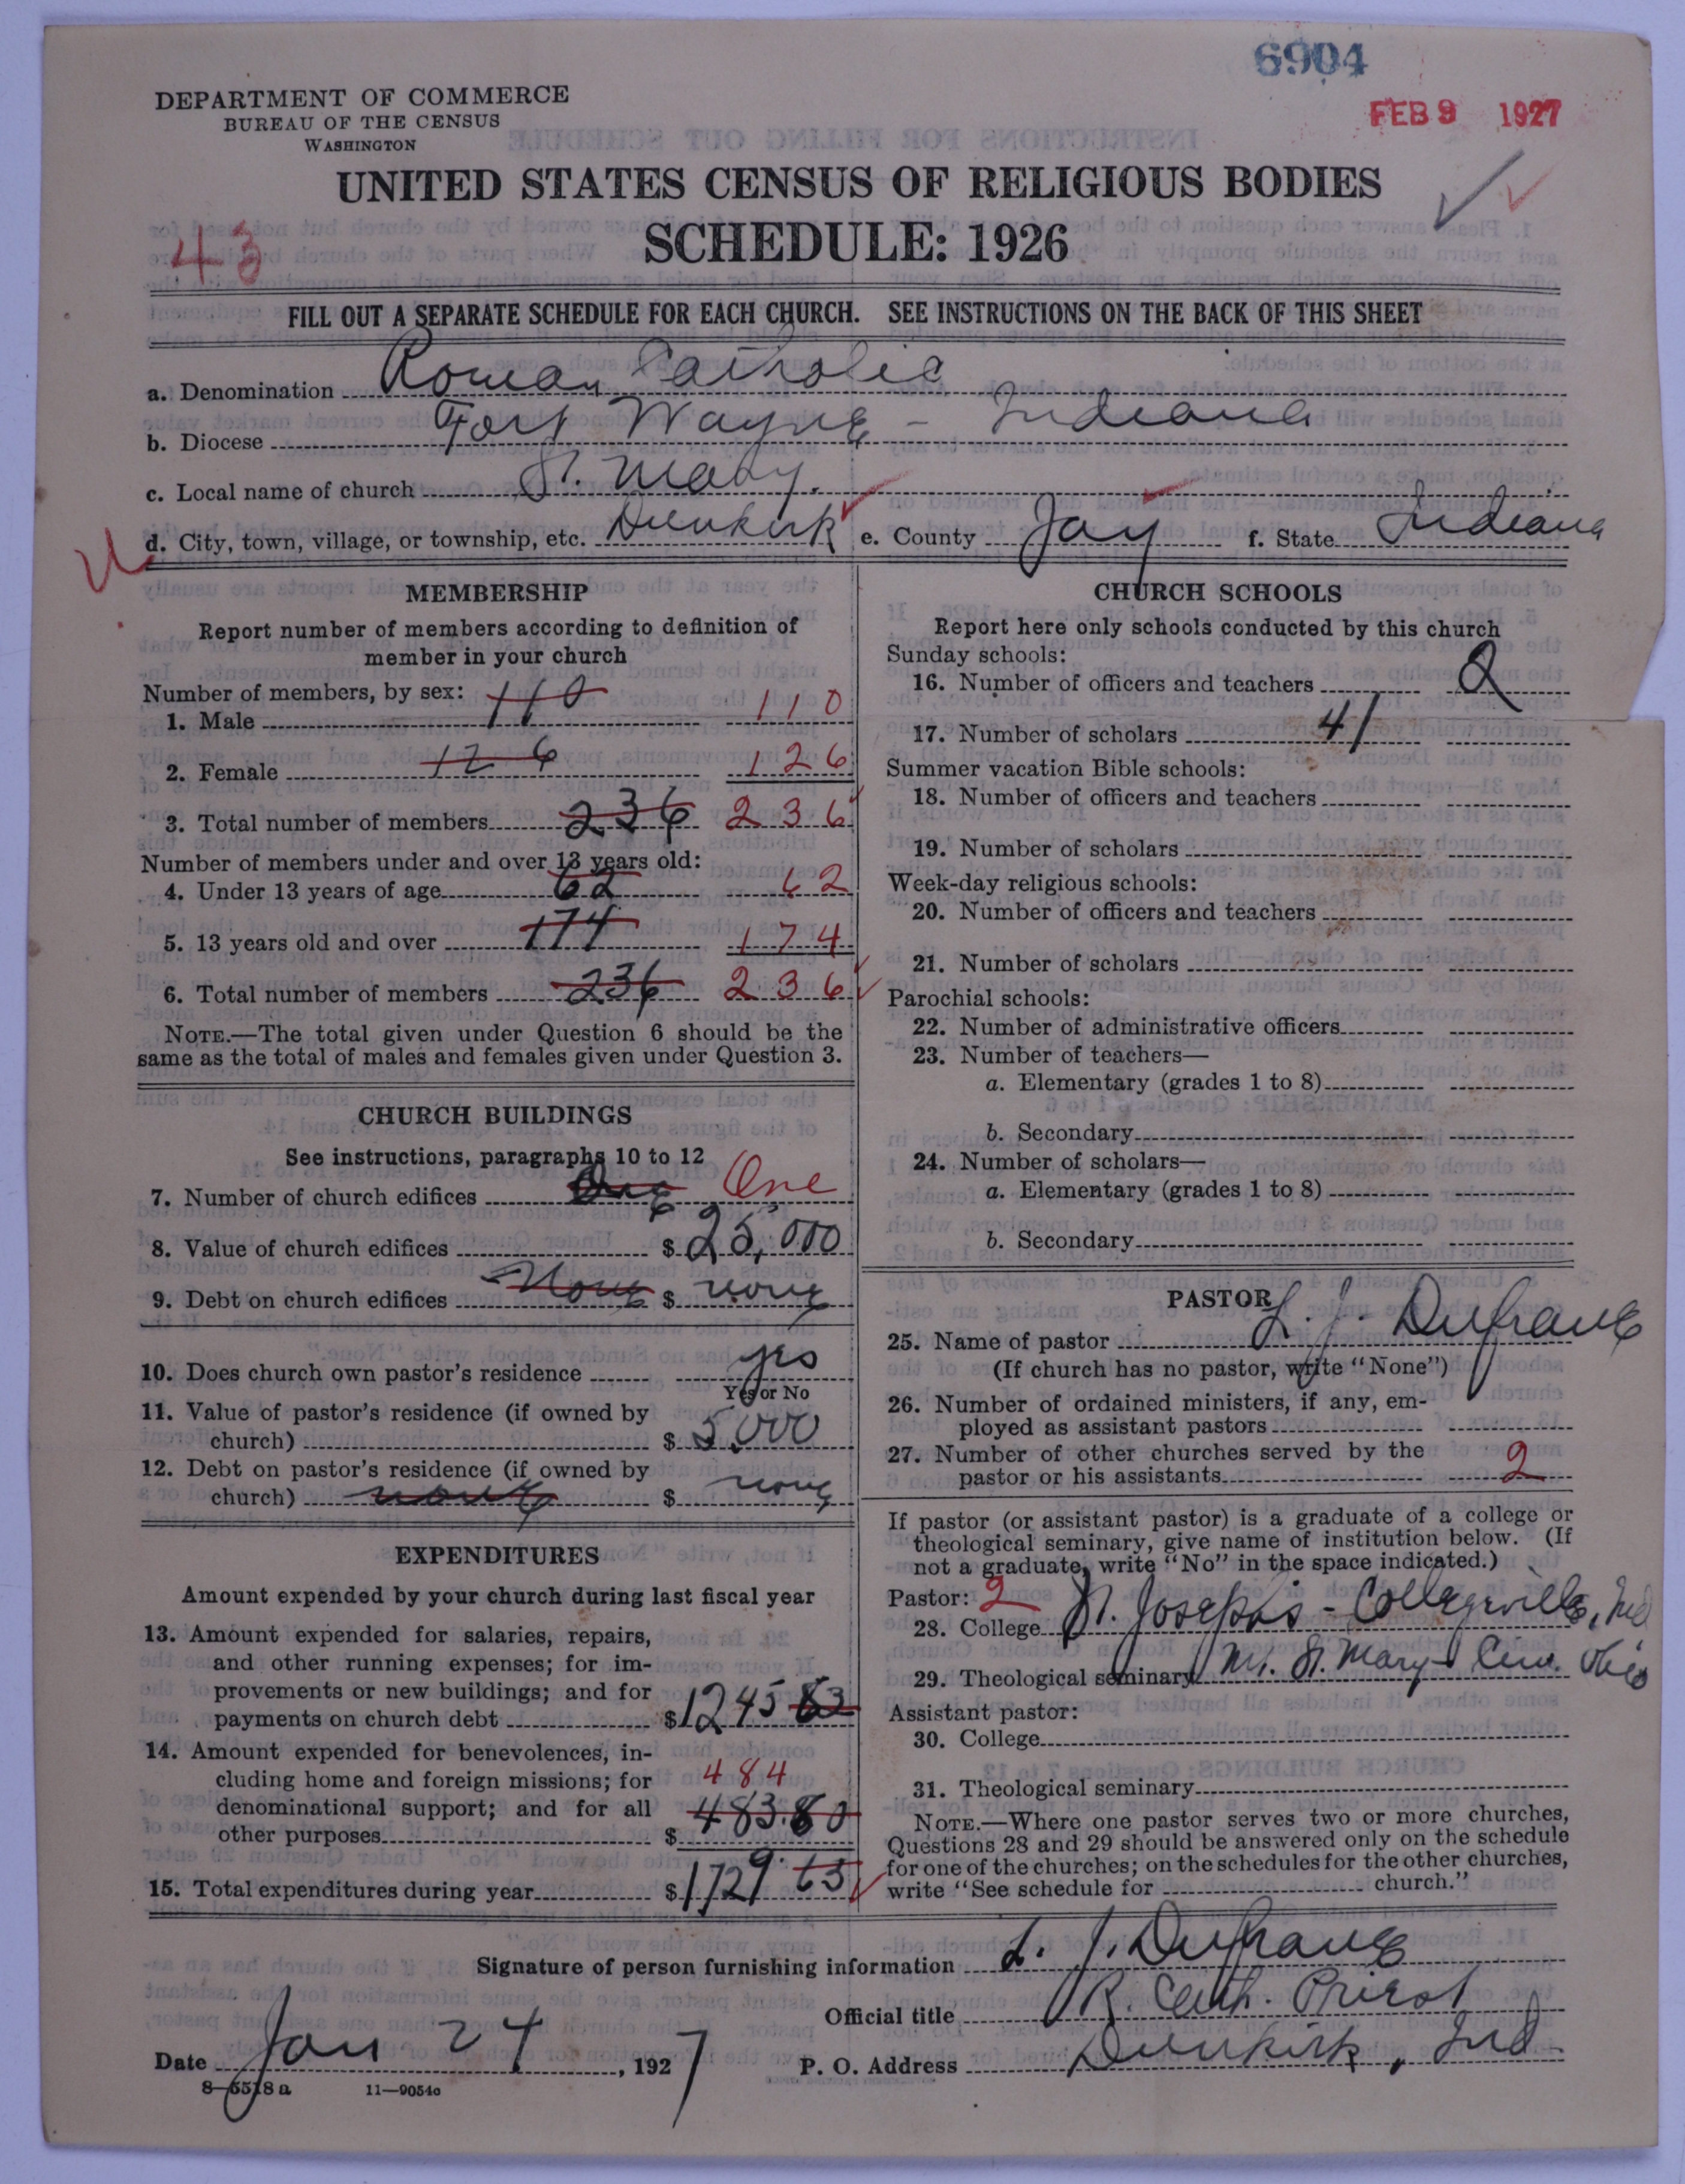 6904
FEB 9 1927
DEPARTMENT OF COMMERCE
BUREAU OF THE CENSUS
WASHINGTON
UNITED STATES CENSUS OF RELIGIOUS BODIES
SCHEDULE: 1926
43
FILL OUT A SEPARATE SCHEDULE FOR EACH CHURCH. SEE INSTRUCTIONS ON THE BACK OF THIS SHEET
a. Denomination Roman Catholic
b. Diocese Fort Wayne - Indiana
c. Local name of church St. Mary.
d. City, town, village, or township, etc. Dunkirk e. County Jay f. State Indiana
MEMBERSHIP
Report number of members according to definition of
member in your church
Number of members, by sex:
1. Male 110 110
2. Female 126 126
3. Total number of members 236 236
Number of members under and over 13 years old:
4. Under 13 years of age 62 62
5. 13 years old and over 174 174
6. Total number of members 236 236
NOTE.—The total given under Question 6 should be the
same as the total of males and females given under Question 3.
CHURCH BUILDINGS
See instructions, paragraphs 10 to 12
7. Number of church edifices One One
8. Value of church edifices $ 25,000
9. Debt on church edifices None $ none
10. Does church own pastor's residence yes
Yes or No
11. Value of pastor's residence (if owned by
church) $ 5,000
12. Debt on pastor's residence (if owned by
church) none $ none
EXPENDITURES
Amount expended by your church during last fiscal year
13. Amount expended for salaries, repairs,
and other running expenses; for im-
provements or new buildings; and for
payments on church debt $1245
14. Amount expended for benevolences, in-
cluding home and foreign missions; for 484
denominational support; and for all 483.80
other purposes $
15. Total expenditures during year $1729
CHURCH SCHOOLS
Report here only schools conducted by this church
Sunday schools:
16. Number of officers and teachers 2
17. Number of scholars 41
Summer vacation Bible schools:
18. Number of officers and teachers
19. Number of scholars
Week-day religious schools:
20. Number of officers and teachers
21. Number of scholars
Parochial schools:
22. Number of administrative officers
23. Number of teachers—
a. Elementary (grades 1 to 8)
b. Secondary
24. Number of scholars—
a. Elementary (grades 1 to 8)
b. Secondary
PASTOR
25. Name of pastor L. J. Dufrane
(If church has no pastor, write "None")
26. Number of ordained ministers, if any, em-
ployed as assistant pastors
27. Number of other churches served by the
pastor or his assistants 2
If pastor (or assistant pastor) is a graduate of a college or
theological seminary, give name of institution below. (If
not a graduate, write "No" in the space indicated.)
Pastor: 2
28. College St. Joseph's - Collegeville, Ind
29. Theological seminary Mt. St. Mary Cin. Ohio
Assistant pastor:
30. College
31. Theological seminary
NOTE.—Where one pastor serves two or more churches,
Questions 28 and 29 should be answered only on the schedule
for one of the churches; on the schedules for the other churches,
write "See schedule for church."
Signature of person furnishing information L. J. Dufrane
Official title R. Cath. Priest
Date Jan 24, 1927 P. O. Address Dunkirk, Ind.
8—5518 a 11—9054a